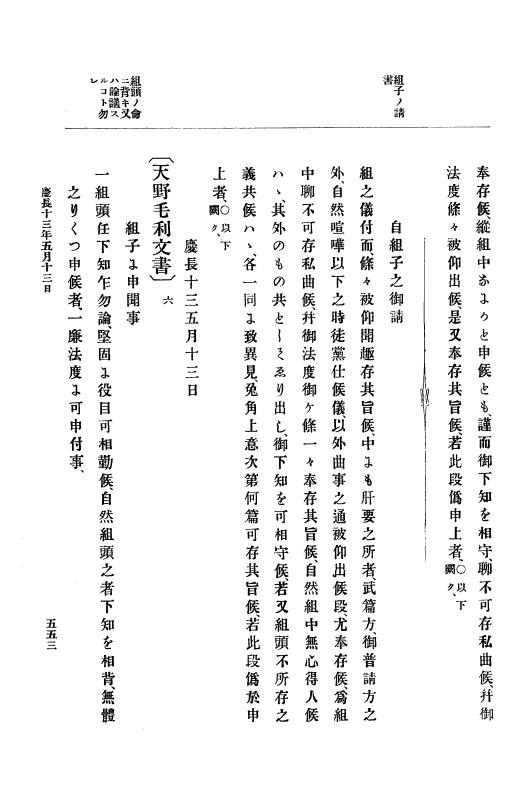 組子ノ請
書
組頭ノ命
ニ背キ又
ハ論議ス
ルコト勿
レ
奉存候、縱組中かよつと申候とも、謹而御下知を相守、聊不可存私曲候、幷御
法度條々被仰出候、是又奉存其旨候、若此段僞申上者、○以下
闕ク、
自組子之御請
組之儀付而條々被仰聞趣存其旨候、中よも肝要之所者、武篇方、御普請方之
外、自然喧嘩以下之時徒黨仕候儀、以外曲事之通被仰出候段、尤奉存候、爲組
中聊不可存私曲候、幷御法度御ケ條一々奉存其旨候、自然組中無心得人候
ハヽ、其外のもの共としてゑり出し、御下知を可相守候、若又組頭不所存之
義共候ハヽ、各一同よ致異見、兎角上意次第何篇可存其旨候、若此段僞於申
上者、○以下
闕ク、
慶長十三五月十三日
〔天野毛利文書〕六
組子よ申聞事
一組頭任下知乍勿論、堅固よ役目可相勤候、自然組頭之者下知を相背、無體
之りくつ申候者、一廉法度よ可申付事、
慶長十三年五月十三日
五五三